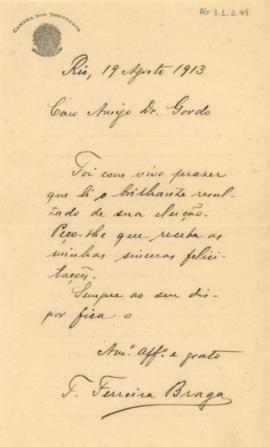 CAMARA DOS DEPUTADOS
AG 3.1.2.44
Rio, 19 Agosto 1913
Caro Amigo Dr. Gordo
Foi com vivo prazer
que li o brilhante resul-
tado de sua eleição.
Peço-lhe que receba as
minhas sinceras felici-
tações.
Sempre ao seu dis-
por fica o
Amº Affº e grato
F. Ferreira Braga